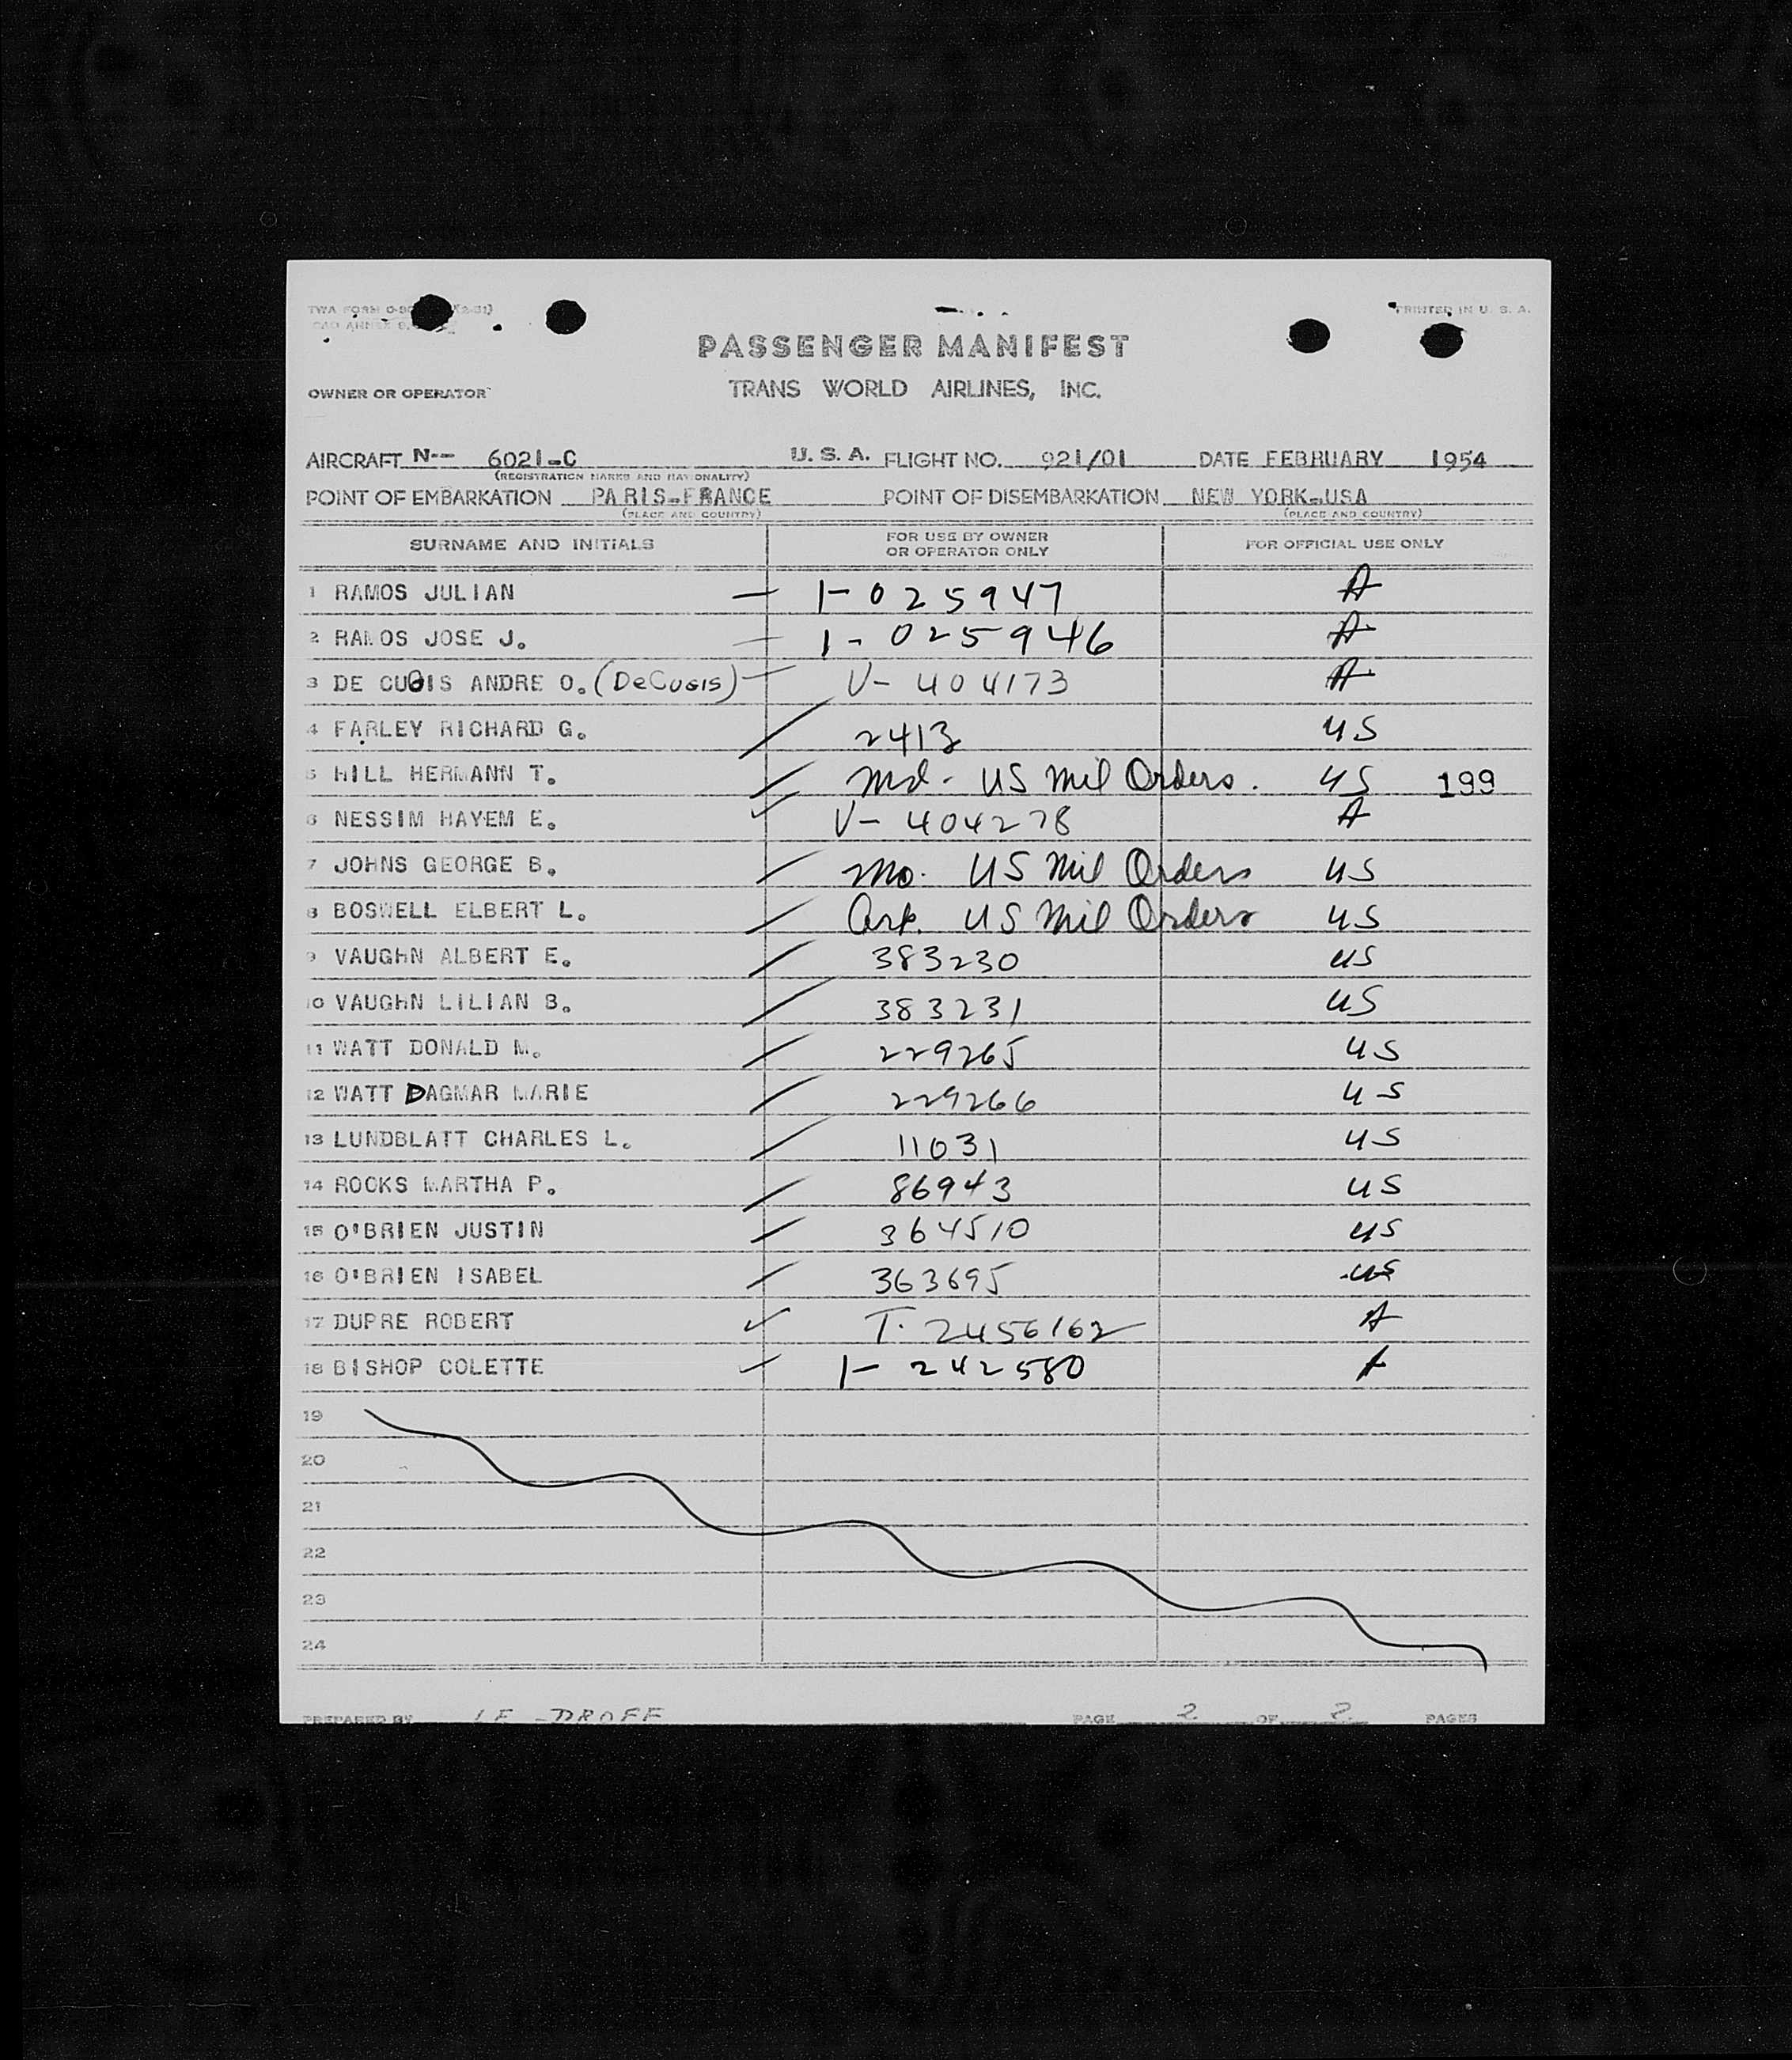 PRINTED IN U. S. A.
PASSENGER MANIFEST
TRANS WORLD AIRLINES, INC.
OWNER OR OPERATOR
AIRCRAFT N-- 6021-C U. S. A. FLIGHT NO. 921/01 DATE FEBRUARY 1954
(REGISTRATION MARKS AND NATIONALITY)
POINT OF EMBARKATION PARIS-FRANCE POINT OF DISEMBARKATION NEW YORK-USA
(PLACE AND COUNTRY) (PLACE AND COUNTRY)
SURNAME AND INITIALS FOR USE BY OWNER OR OPERATOR ONLY FOR OFFICIAL USE ONLY
1 RAMOS JULIAN — 1-025947 A
2 RAMOS JOSE J. — 1-025946 A
3 DE CUGIS ANDRE O. (DeCUGIS) — V-404173 A
4 FARLEY RICHARD G. 2413 US
5 HILL HERMANN T. Md- US Mil Orders. US 199
6 NESSIM HAYEM E. V-404278 A
7 JOHNS GEORGE B. Mo. US Mil Orders US
8 BOSWELL ELBERT L. Ark. US Mil Orders US
9 VAUGHN ALBERT E. 383230 US
10 VAUGHN LILIAN B. 383231 US
11 WATT DONALD M. 229265 US
12 WATT DAGMAR MARIE 229266 US
13 LUNDBLATT CHARLES L. 11031 US
14 ROCKS MARTHA P. 86943 US
15 O'BRIEN JUSTIN 364510 US
16 O'BRIEN ISABEL 363695 US
17 DUPRE ROBERT T. 2456162 A
18 BISHOP COLETTE 1-242580 A
19
20
21
22
23
24
PREPARED BY PAGE 2 OF 2 PAGES